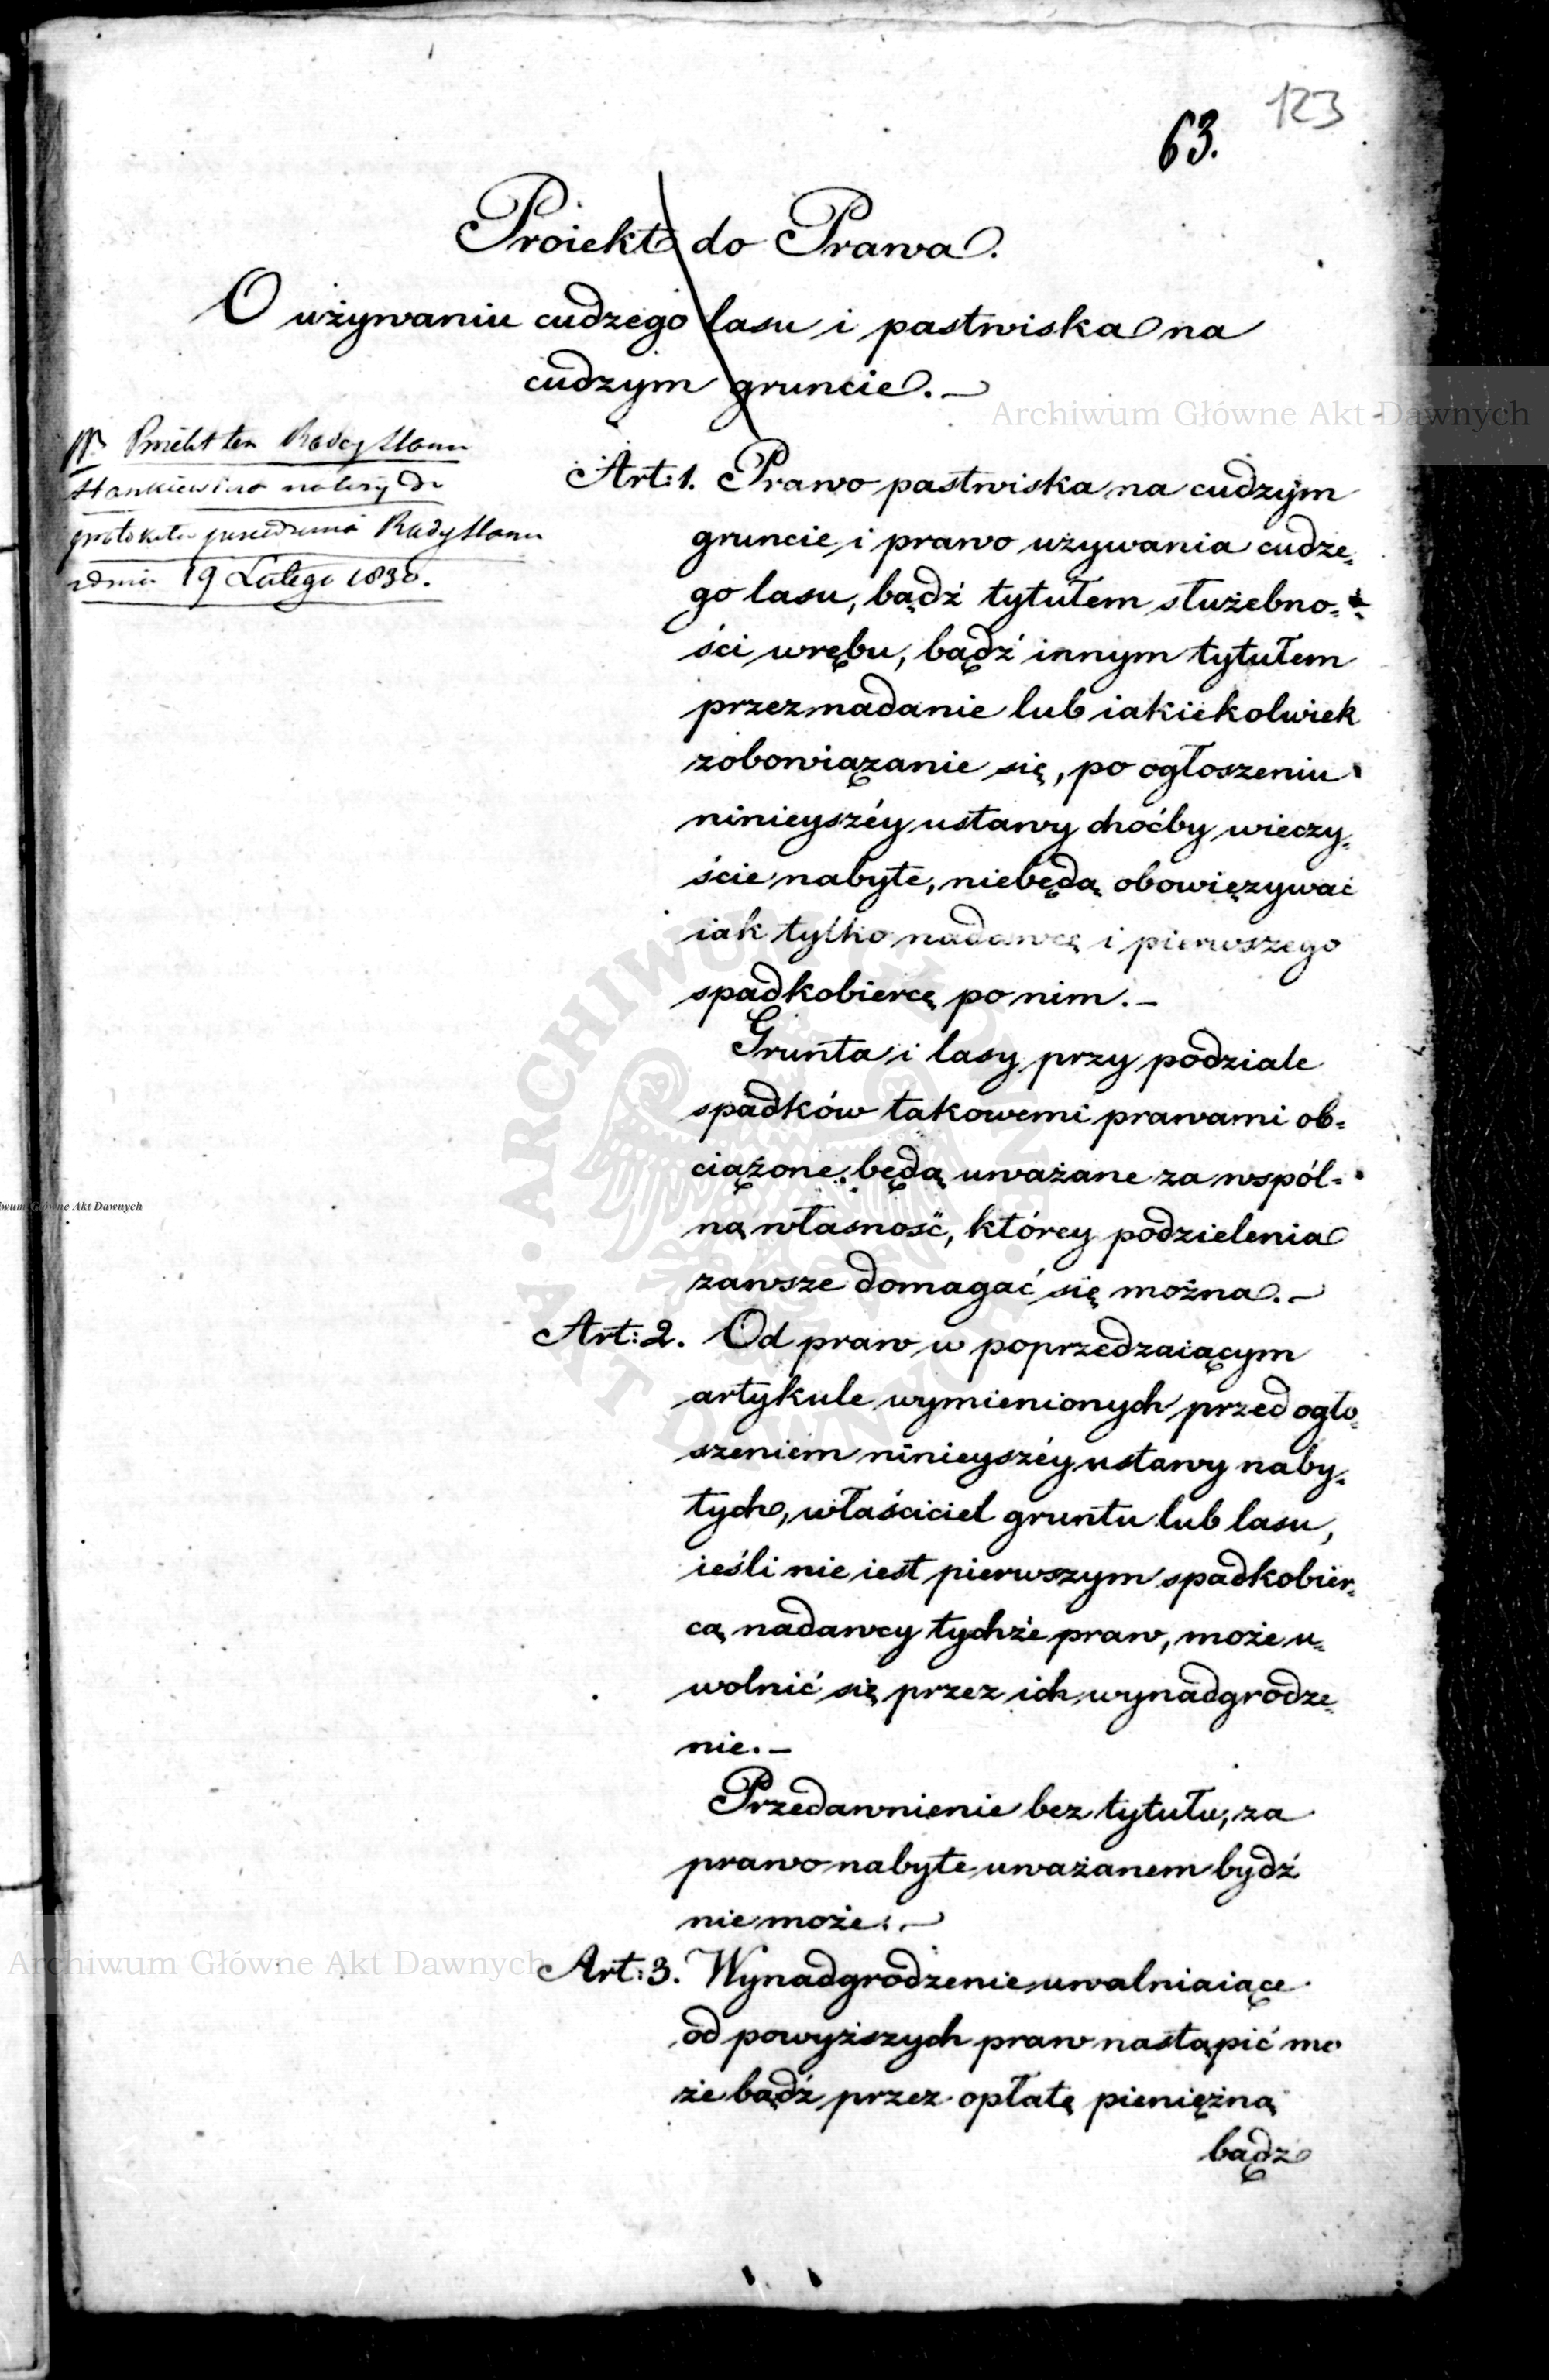 123
63.
Proiekt do Prawa.
O używaniu cudzego lasu i pastwiska na
cudzym gruncie. –
Proiekt ten Radcy Stanu
Stankiewicza należy do
protokułu posiedzenia Rady Stanu
z dnia 19 Lutego 1830.
Art: 1. Prawo pastwiska na cudzym
gruncie i prawo używania cudze=
go lasu, bądź tytułem służebno=
ści wrębu, bądź innym tytułem
przez nadanie lub iakiekolwiek
zobowiązanie się, po ogłoszeniu
ninieyszéy ustawy choćby wieczy=
ście nabyte, niebędą obowięzywać
iak tylko nadawcę i pierwszego
spadkobiercę po nim. –
Grunta i lasy przy podziale
spadków takowemi prawami ob=
ciążone będą uważane za wspól=
ną własność, którey podzielenia
zawsze domagać się można. –
Art: 2. Od praw w poprzedzaiącym
artykule wymienionych przed ogło=
szeniem ninieyszéy ustawy naby=
tych, właściciel gruntu lub lasu,
ieśli nie iest pierwszym spadkobier=
cą nadawcy tychże praw, może u=
wolnić się przez ich wynadgrodze=
nie. –
Przedawnienie bez tytułu, za
prawo nabyte uważanem bydź
nie może. –
Art: 3. Wynadgrodzenie uwalniaiące
od powyższych praw nastąpić mo
że bądź przez opłatę pieniężną
bądź
Archiwum Główne Akt Dawnych
iwum Główne Akt Dawnych
ARCHIWUM GŁÓWNE AKT DAWNYCH
Archiwum Główne Akt Dawnych